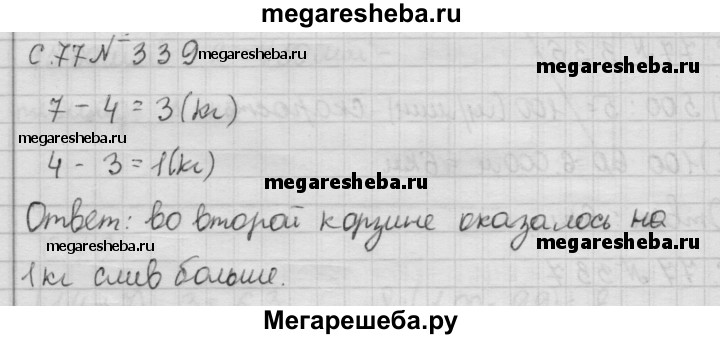 megaresheba.ru
с.77 № 339 megaresheba.ru
megaresheba.ru
7 - 4 = 3 (кг)
megaresheba.ru
4 - 3 = 1 (кг)
megaresheba.ru
Ответ: во второй корзине оказалось на
megaresheba.ru
megaresheba.ru
1 кг слив больше.
Мегарешеба.ру